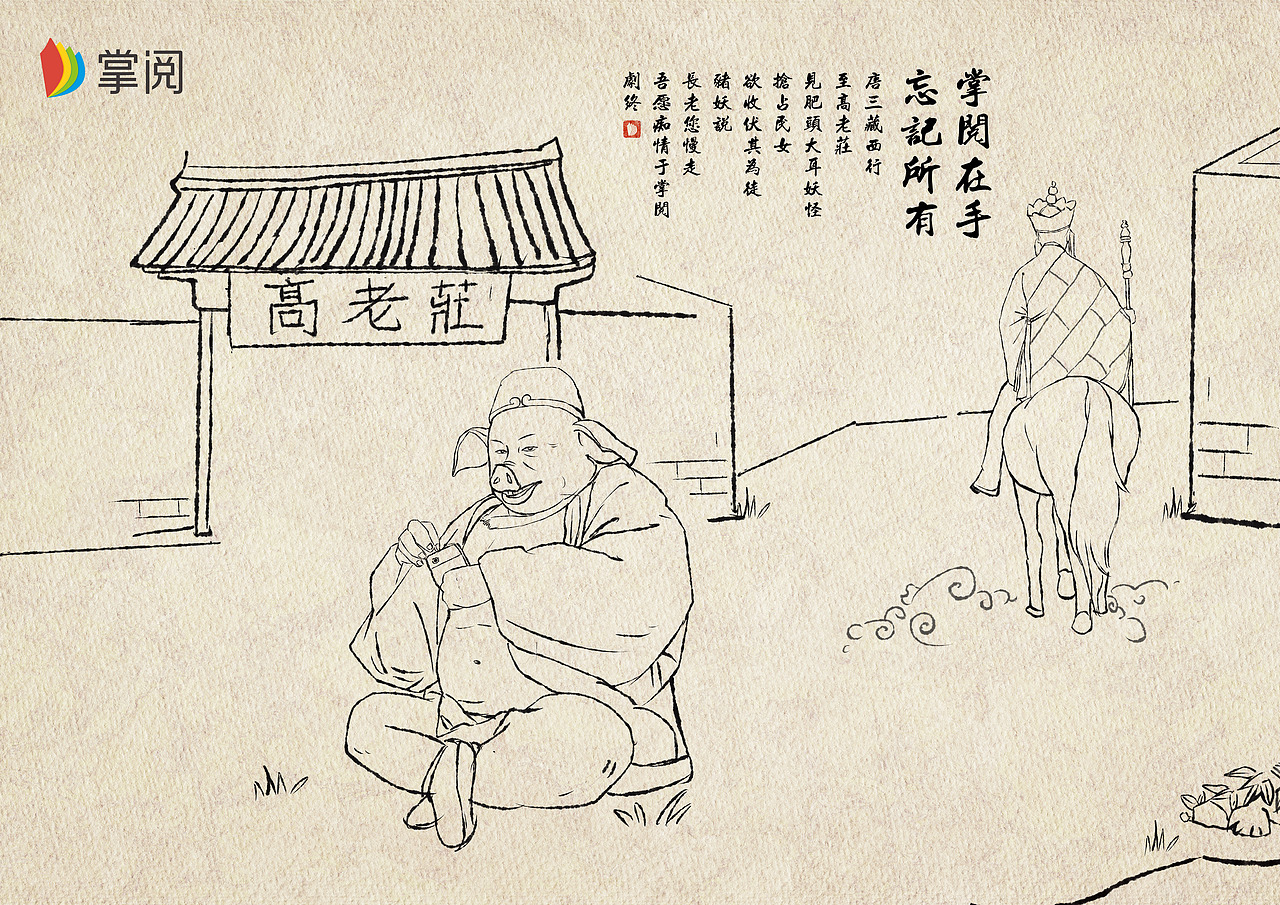 掌阅
掌閱在手
忘記所有
唐三藏西行
至高老莊
見肥頭大耳妖怪
搶占民女
欲收伏其為徒
豬妖説
長老您慢走
吾愿痴情于掌閱
劇終
高老莊